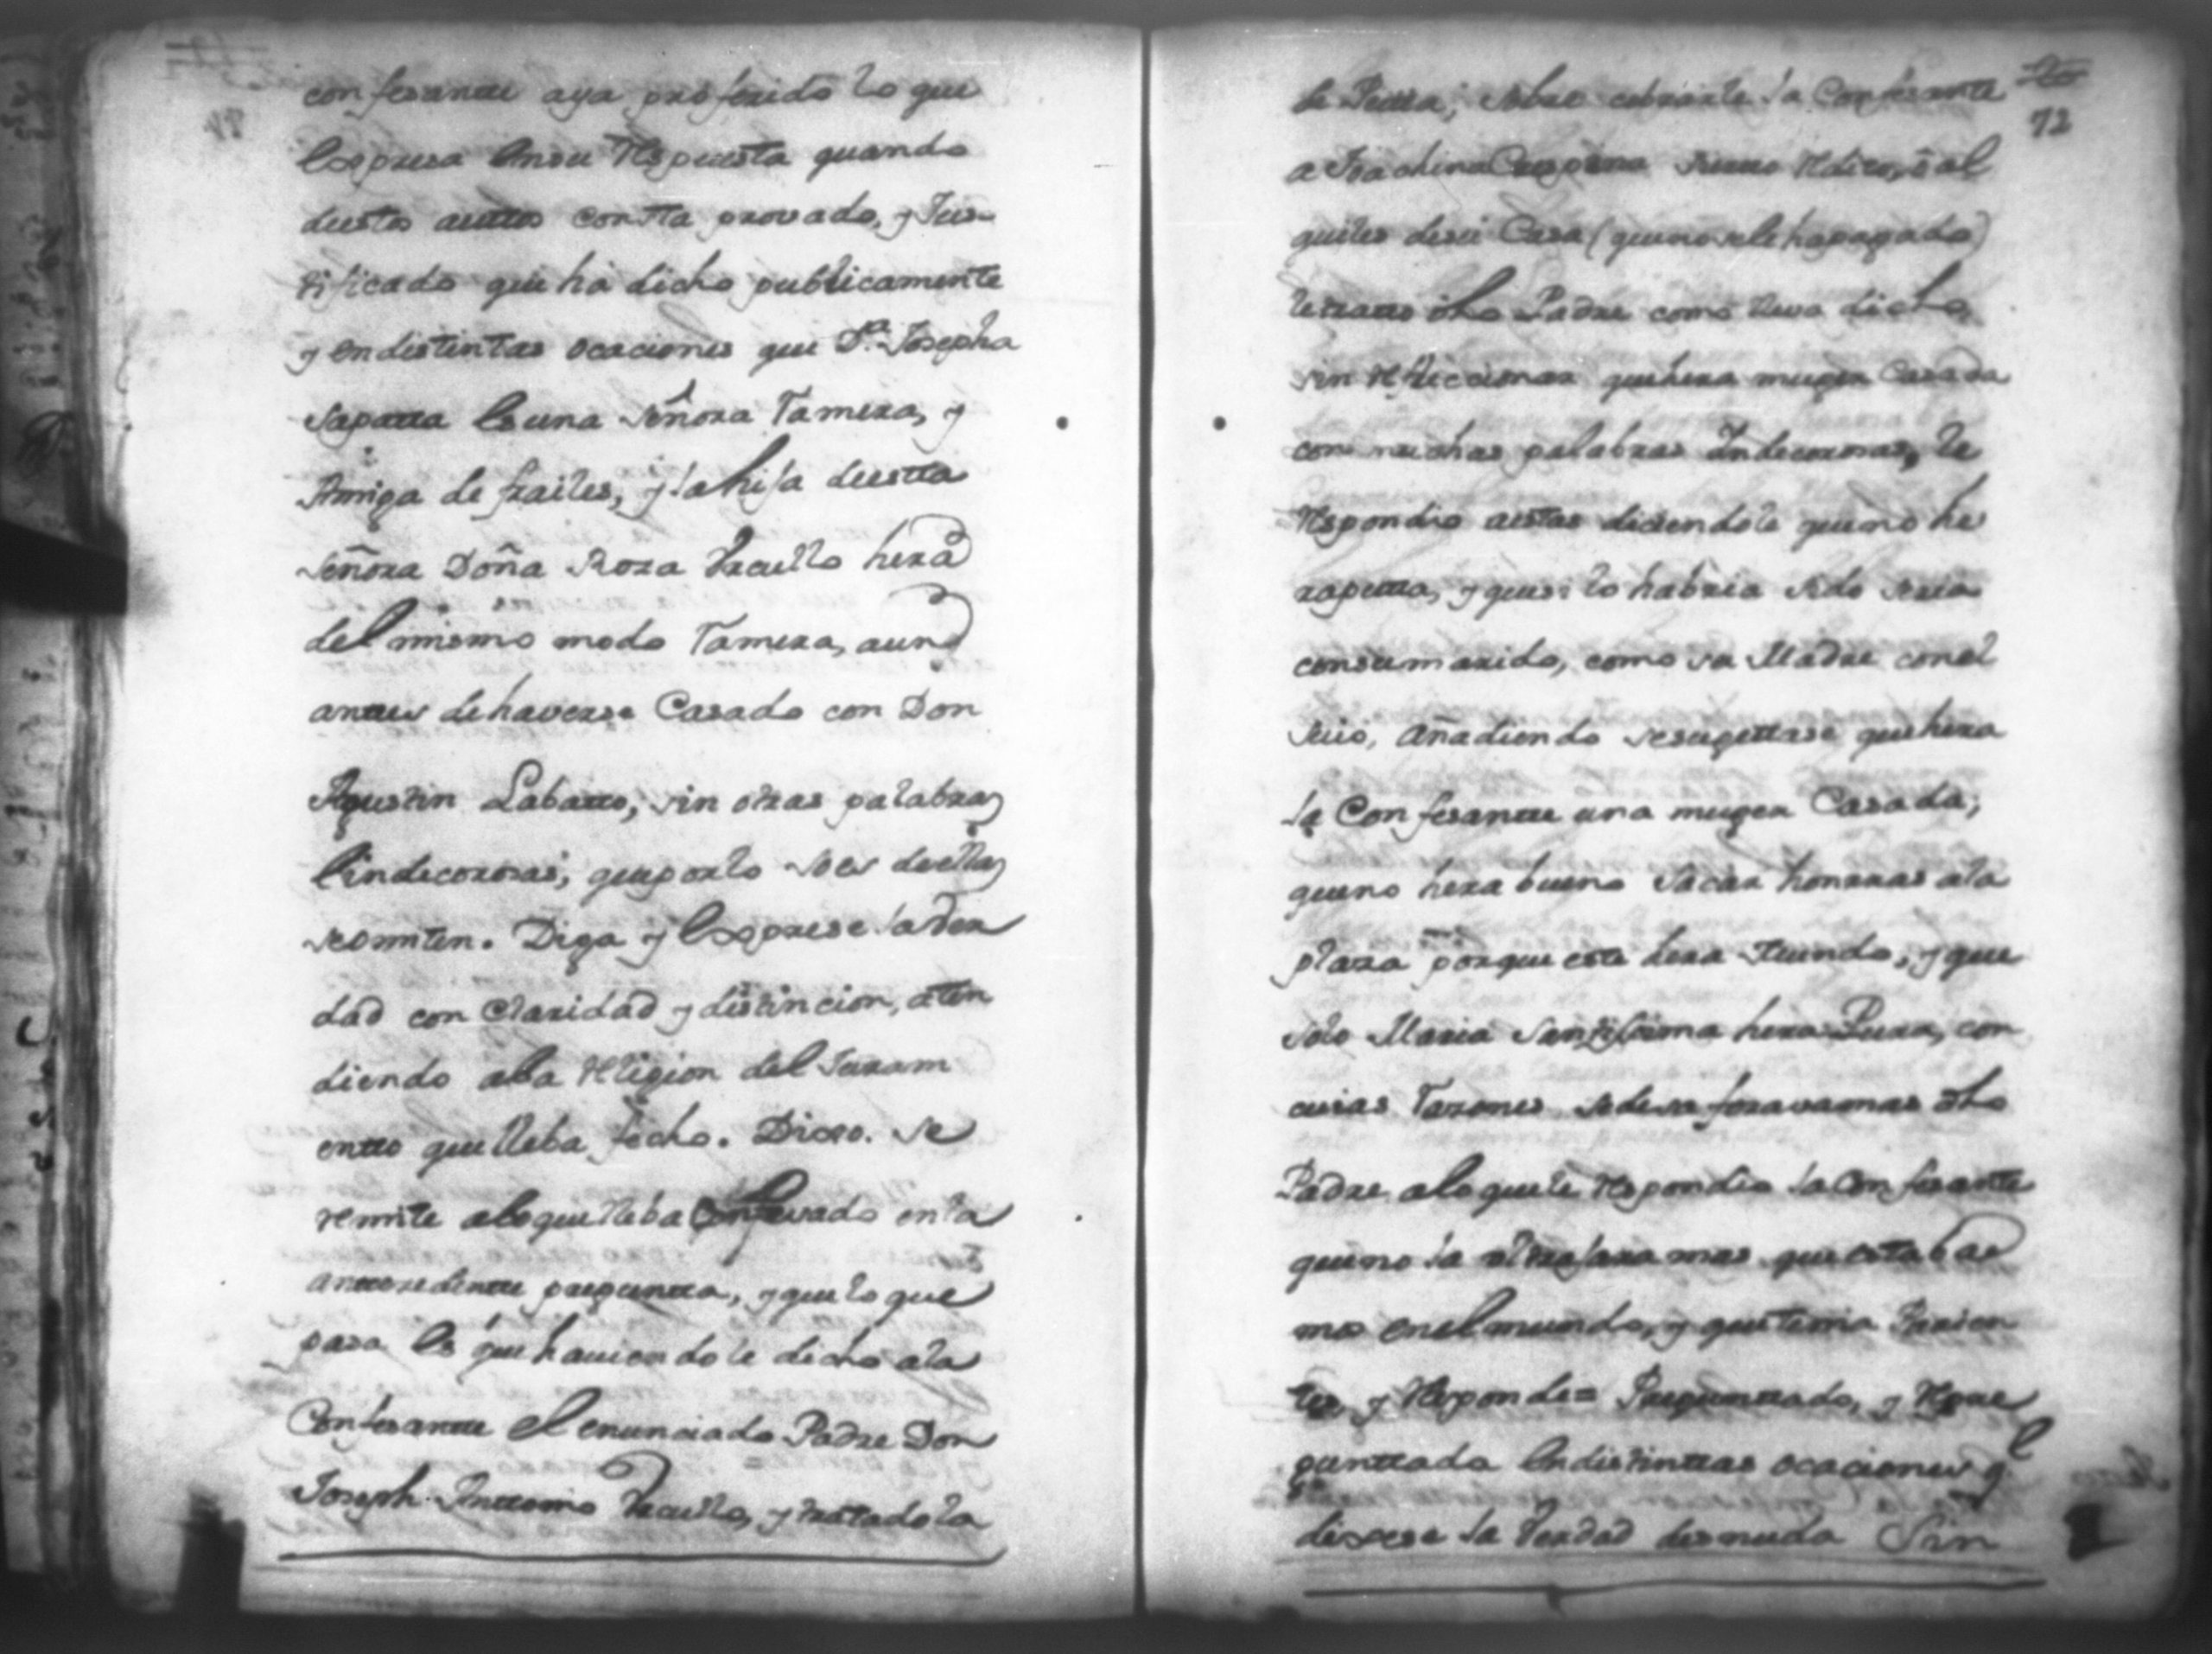 confesantte aya proferido lo que
Expresa Ensu Respuesta quando
destos auttos constta provado, y Jus
tificado que há dicho publicamente
y en distintas ocaciones que Da. Josepha
Sapatta Es una Señora Ramera, y
Amiga de frailes, y la hija de estta
Señora Doña Roza Urcullo hera
del mismo modo Ramera, aun
anttes de haverse Casado con Don
Agustin Labatto, sin otras palabras
Eindecorosas, que por lo soes de ellas
se omiten. Diga y Exprese la Ver
dad con Claridad y distincion, aten
diendo ala Religion del Juram
entto que lleba fecho. Dixo. Se
remite alo que lleba Confesado en la
anttesedentte preguntta, y que lo que
pasa Es que haviendole dicho ala
Confesantte el enunciado Padre Don
Joseph Anttonio Urcullo, y tratadola
de Putta; sobre cobrarle la Confesante
a Joachina sinco Rs. dico, de al
quiler de su Casa (que no se le ha pagado)
le tratto dho Padre como lleva dicho
sin refleccionar que hera muger Casada
con muchas palabras Indecorosas, le
Respondio a estas diciendole que no he
ra putta, y que si lo habria sido seria
con su marido, como su Madre con el
suio, añadiendo se sugettase que hera
la Confesantte una muger Casada,
que no hera bueno sacar honrras ala
plaza porque este hera Mundo, y que
solo Maria Santissima hera Pura, con
cuias razones se desaforava mas dho
Padre alo que le Respondio la Confesante
que no la ultrajara mas que estaba
mos en el mundo, y que tenia Parien
tes, y Responde= Preguntado, y Repre
punttada En distinttas ocaciones q.e
dixese la Verdad desnuda Sin
72